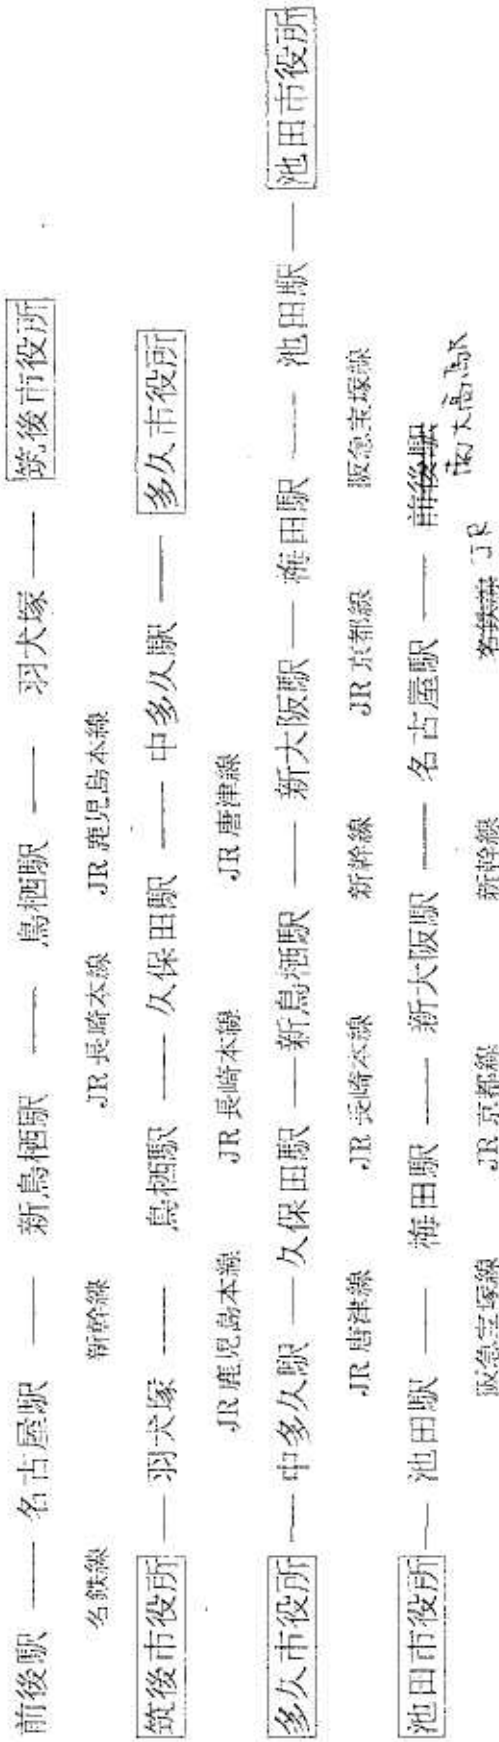 前後駅 ―― 名古屋駅 ―― 新鳥栖駅 ―― 鳥栖駅 ―― 羽犬塚 ―― 筑後市役所
名鉄線 新幹線 JR 長崎本線 JR 鹿児島本線
筑後市役所 ―― 羽犬塚 ―― 鳥栖駅 ―― 久保田駅 ―― 中多久駅 ―― 多久市役所
JR 鹿児島本線 JR 長崎本線 JR 唐津線
多久市役所 ― 中多久駅 ― 久保田駅 ― 新鳥栖駅 ―― 新大阪駅 ― 梅田駅 ―― 池田駅 ― 池田市役所
JR 唐津線 JR 長崎本線 新幹線 JR 京都線 阪急宝塚線
池田市役所 ― 池田駅 ―― 梅田駅 ―― 新大阪駅 ―― 名古屋駅 ―― 前後駅
南大高駅
阪急宝塚線 JR 京都線 新幹線 名鉄線 JR